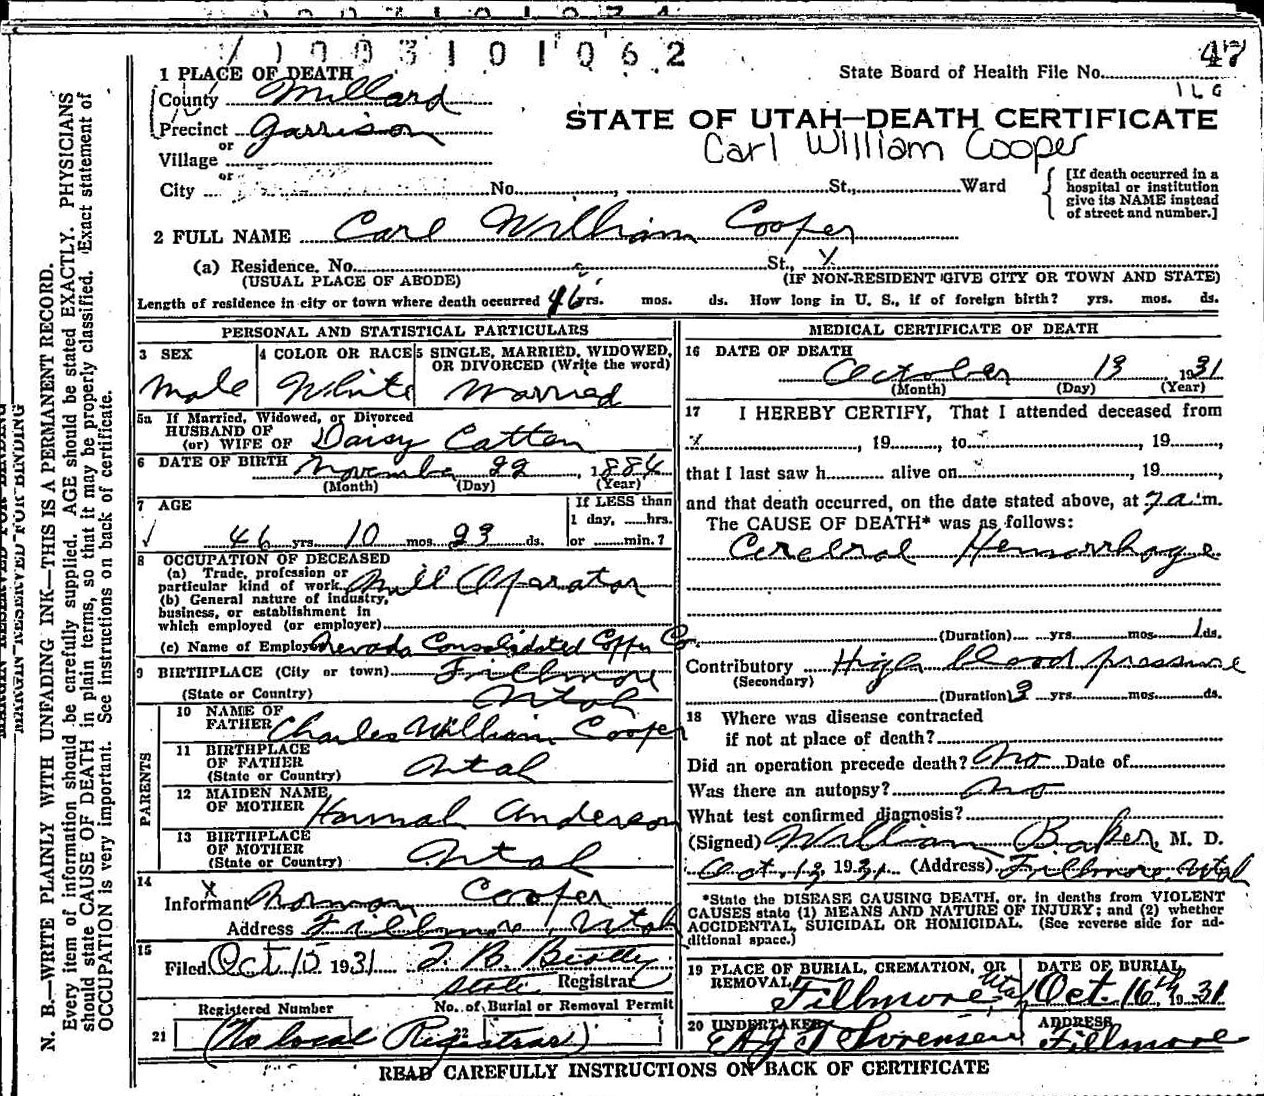 1003101062
47
1 PLACE OF DEATH
State Board of Health File No.
County Millard
Precinct Garrison
STATE OF UTAH—DEATH CERTIFICATE
or
Carl William Cooper
Village
or
City No. , St., Ward
[If death occurred in a
hospital or institution
give its NAME instead
of street and number.]
2 FULL NAME Carl William Cooper
(a) Residence. No. St.,
(USUAL PLACE OF ABODE) (IF NON-RESIDENT GIVE CITY OR TOWN AND STATE)
Length of residence in city or town where death occurred 46 yrs. mos. ds. How long in U. S., if of foreign birth? yrs. mos. ds.
PERSONAL AND STATISTICAL PARTICULARS
3 SEX
Male
4 COLOR OR RACE
White
5 SINGLE, MARRIED, WIDOWED,
OR DIVORCED (Write the word)
Married
5a If Married, Widowed, or Divorced
HUSBAND OF
(or) WIFE OF Daisy Catten
6 DATE OF BIRTH November 22, 1884
(Month) (Day) (Year)
7 AGE
46 yrs 10 mos 23 ds.
If LESS than
1 day, hrs.
or min.?
8 OCCUPATION OF DECEASED
(a) Trade, profession or
particular kind of work Mill Operator
(b) General nature of industry,
business, or establishment in
which employed (or employer)
(c) Name of Employer Nevada Consolidated Copper Co.
9 BIRTHPLACE (City or town) Fillmore
(State or Country) Utah
PARENTS
10 NAME OF
FATHER Charles William Cooper
11 BIRTHPLACE
OF FATHER Utah
(State or Country)
12 MAIDEN NAME
OF MOTHER Hannah Anderson
13 BIRTHPLACE
OF MOTHER Utah
(State or Country)
14
Informant Norman Cooper
Address Fillmore, Utah
15
Filed Oct 15 1931
State Registrar
Registered Number No. of Burial or Removal Permit
21 (No local Registrar) 22
MEDICAL CERTIFICATE OF DEATH
16 DATE OF DEATH
October 13 1931
(Month) (Day) (Year)
17 I HEREBY CERTIFY, That I attended deceased from
, 19 , to , 19 ,
that I last saw h alive on , 19 ,
and that death occurred, on the date stated above, at 7 a.m.
The CAUSE OF DEATH* was as follows:
Cerebral Hemorrhage
(Duration) yrs. mos. 1 ds.
Contributory High blood pressure
(Secondary)
(Duration) 3 yrs. mos. ds.
18 Where was disease contracted
if not at place of death?
Did an operation precede death? No Date of
Was there an autopsy? no
What test confirmed diagnosis?
(Signed) William Baker M. D.
Oct. 13, 1931. (Address) Fillmore, Utah
*State the DISEASE CAUSING DEATH, or, in deaths from VIOLENT
CAUSES state (1) MEANS AND NATURE OF INJURY; and (2) whether
ACCIDENTAL, SUICIDAL OR HOMICIDAL. (See reverse side for ad-
ditional space.)
19 PLACE OF BURIAL, CREMATION, OR
REMOVAL
Fillmore Utah
DATE OF BURIAL
Oct. 16th 1931
20 UNDERTAKER
Sorensen
ADDRESS
Fillmore
READ CAREFULLY INSTRUCTIONS ON BACK OF CERTIFICATE
MARGIN RESERVED FOR BINDING
N. B.—WRITE PLAINLY WITH UNFADING INK—THIS IS A PERMANENT RECORD.
Every item of information should be carefully supplied. AGE should be stated EXACTLY. PHYSICIANS
should state CAUSE OF DEATH in plain terms, so that it may be properly classified. Exact statement of
OCCUPATION is very important. See instructions on back of certificate.